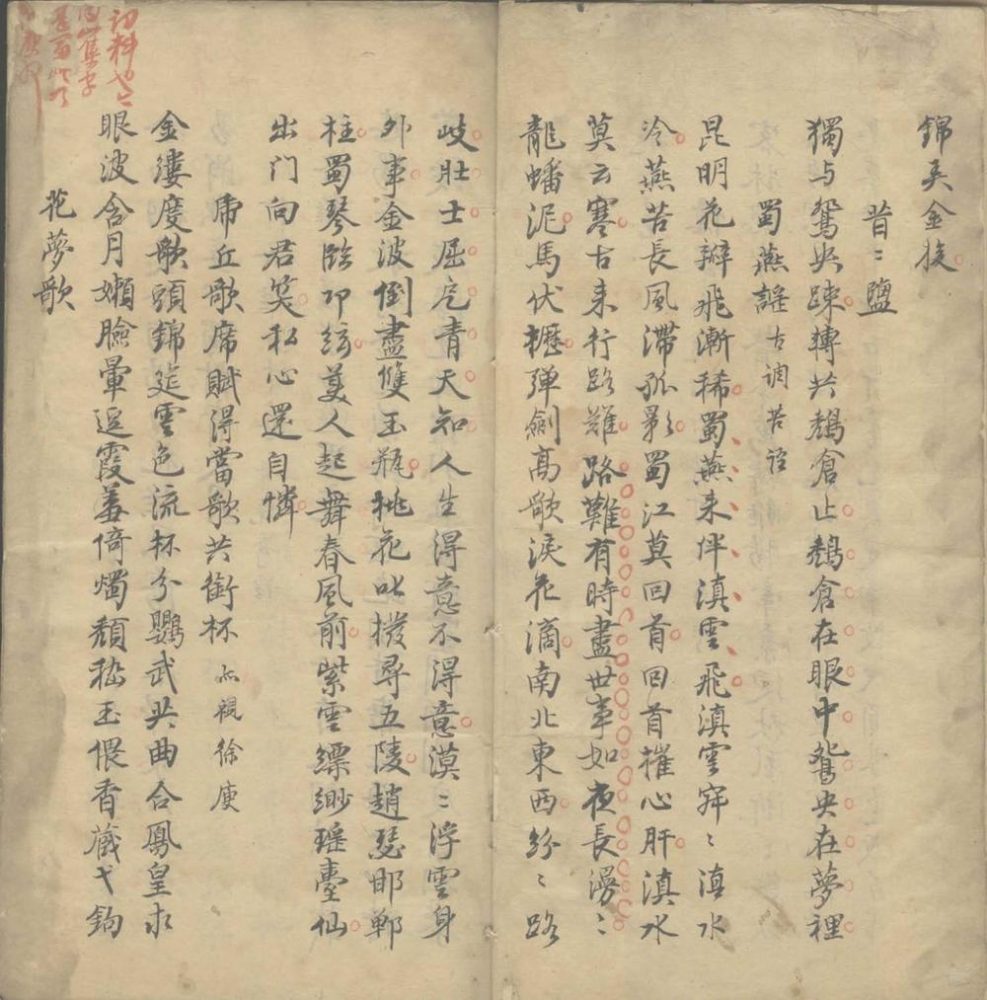 錦矣金㧞
昔〻鹽
獨与鴛央踈轉共鶬倉止鶬倉在眼中鴛央在夢裡
蜀燕謠古调苦诠
昆明花辧飛漸稀蜀燕未伴滇雲飛滇雲窂〻滇水
冷燕苦長風滯孤影蜀江莫回首回首摧心肝滇水
莫云寒古来行路難路難有時盡世事如夜長漫〻
龍蟠泥馬伏櫪弹劍髙歌淚花滴南北東西紛〻路
岐壮士屈厄青天知人生得意不得意漠〻浮雲身
外事金波倒盡雙玉瓶桃花叱撥尋五陵趙瑟邯鄲
柱蜀琴臨卭絃美人起舞春風前紫雲縹緲瑤臺仙
出门向君笑私心還自憐
虎丘歌席賦得當歌共銜杯 徐庾
金縷度歌頭錦筵雲色流杯分鸚武共曲合鳳皇求
眼波含月嬾臉暈逗霞羞倚燭頹嵇玉偎香蔵弋鈎
花夢歌